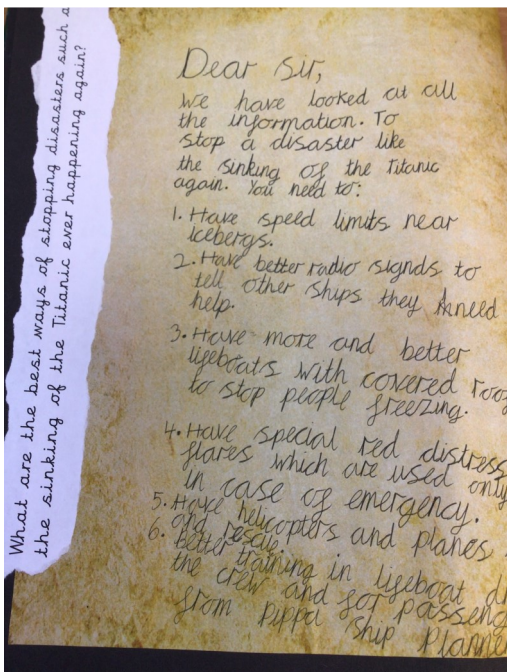 What are the best ways of stopping disasters such a
the sinking of the Titanic ever happening again?
Dear Sir,
We have looked at all
the information. To
stop a disaster like
the sinking of the Titanic
again. You need to:
1. Have speed limits near
icebergs.
2. Have better radio signals to
tell other ships they need
help.
3. Have more and better
lifeboats with covered roof
to stop people freezing.
4. Have special red distress
flares which are used only
in case of emergency.
5. Have helicopters and planes
and rescue.
6. Better training in lifeboat dr
the crew and for passeng
from Pippa Ship Planne